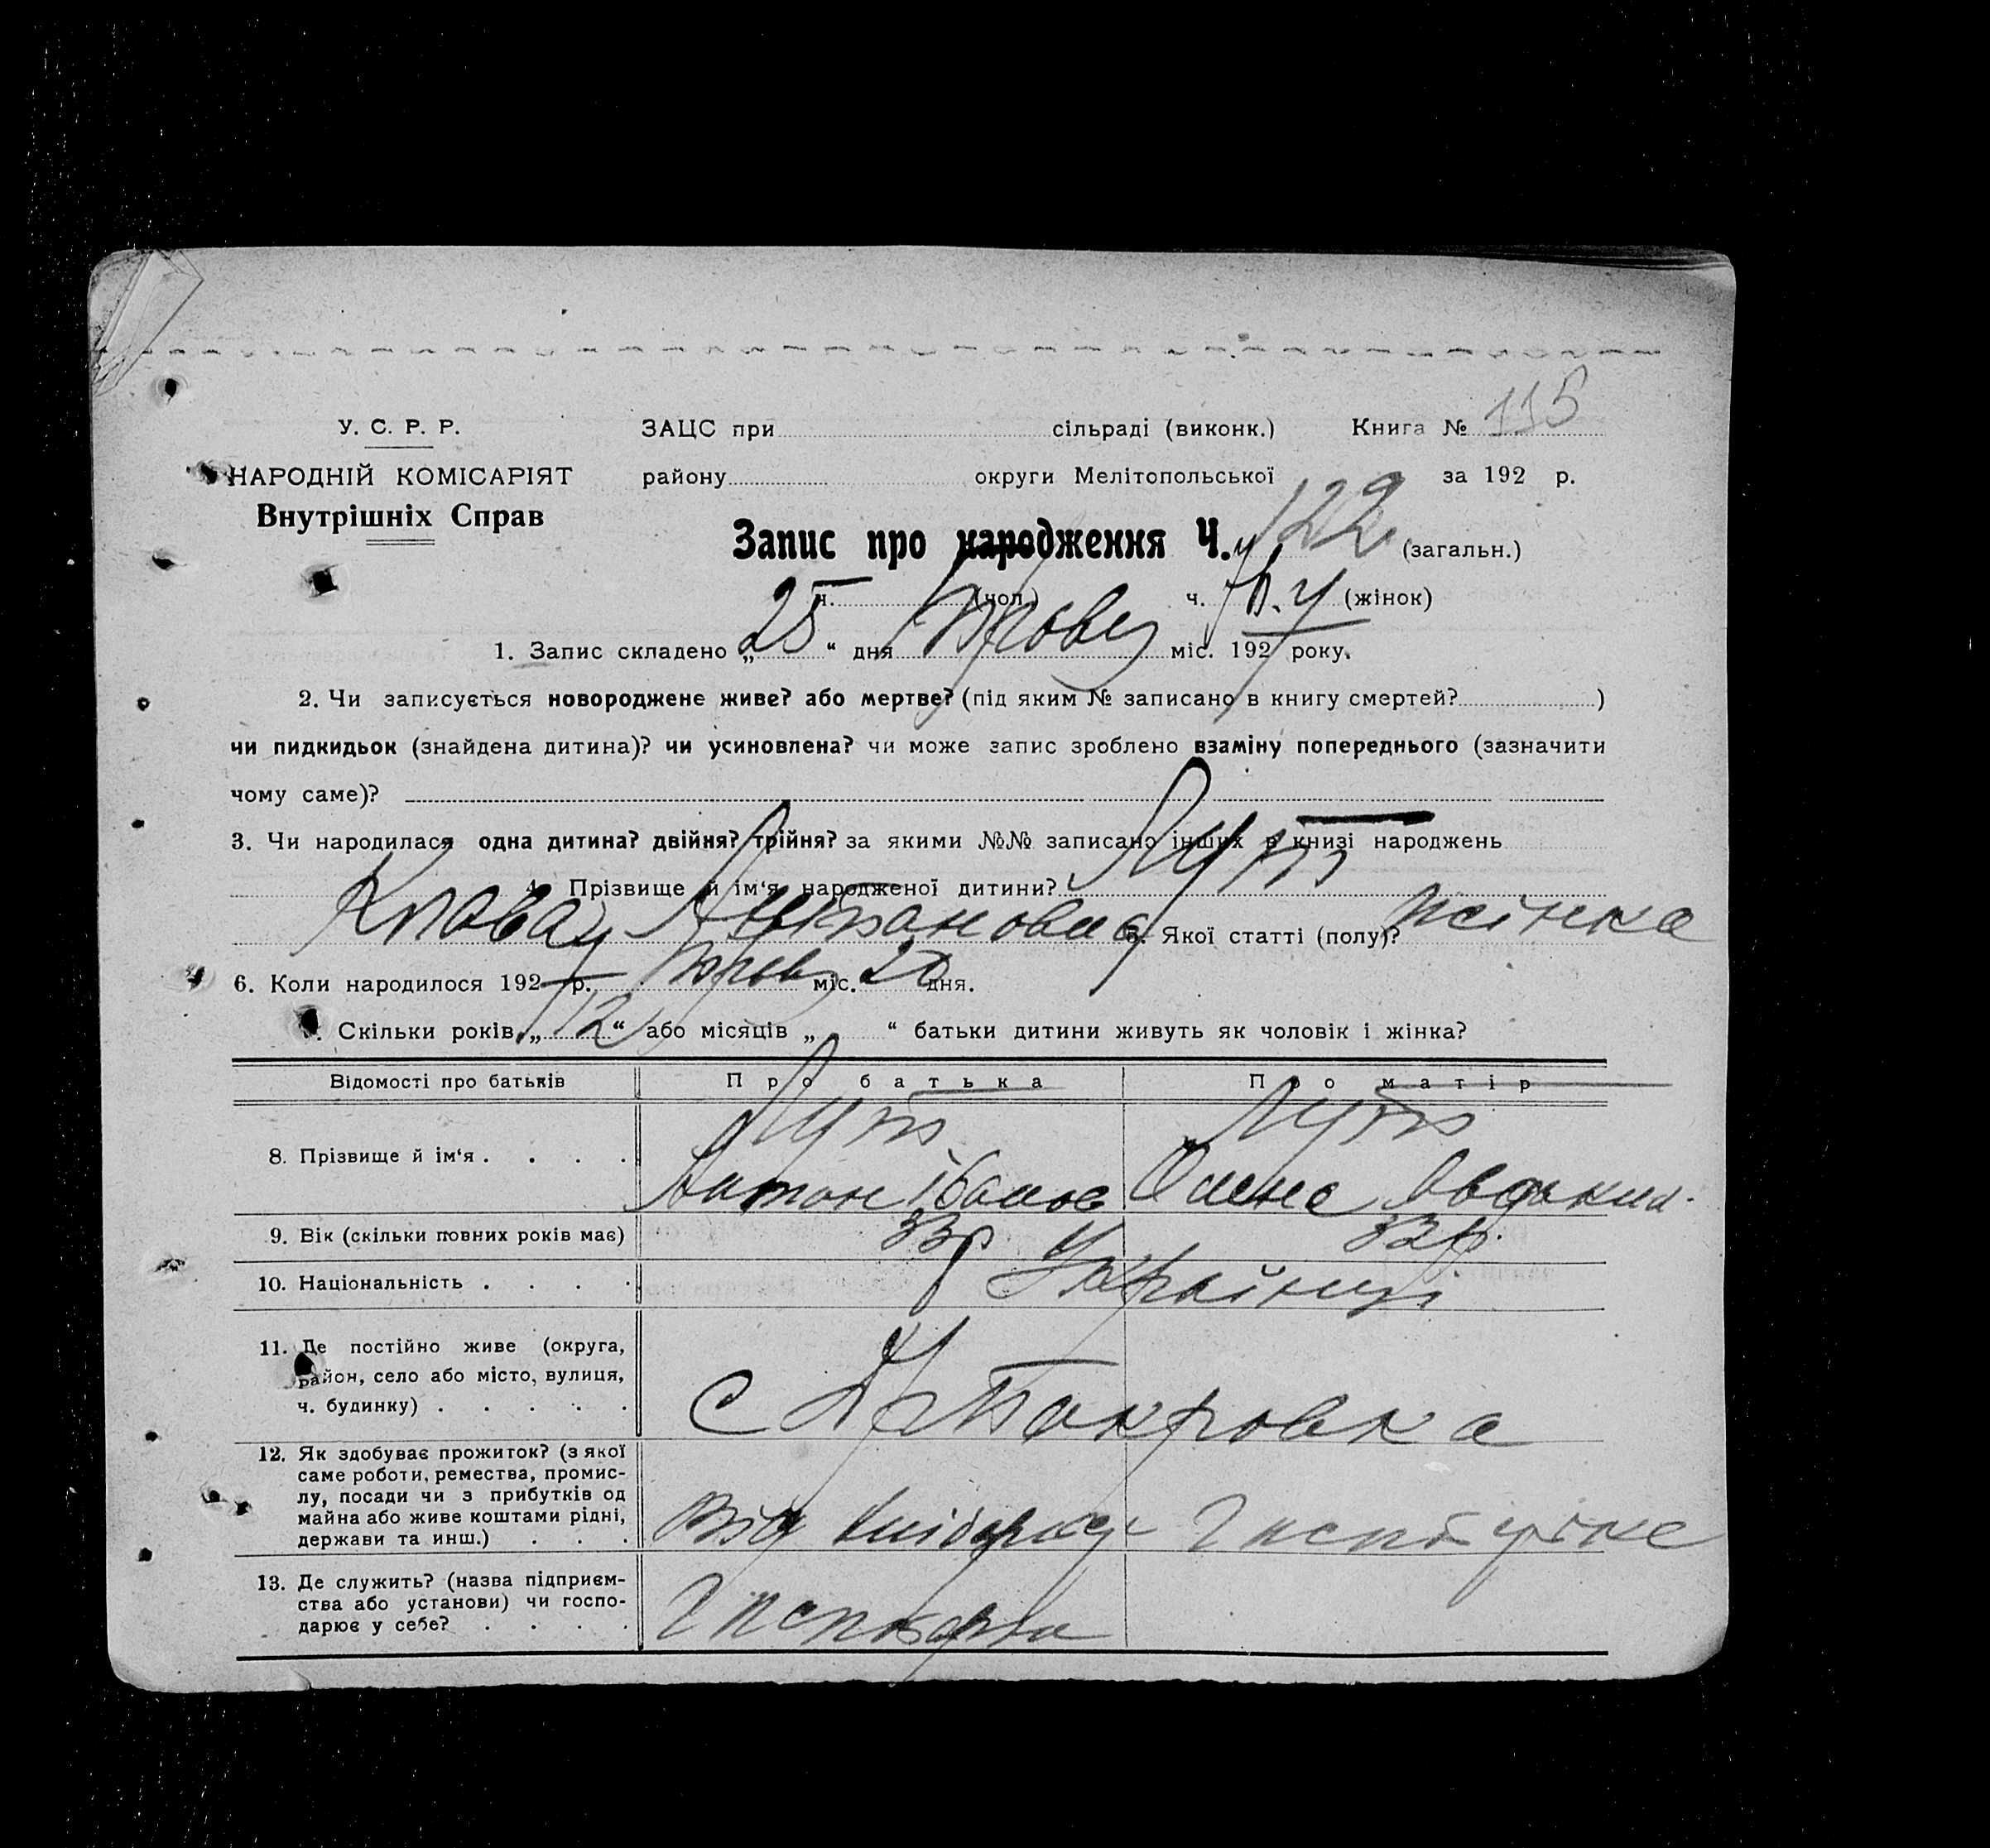 У. С. Р. Р.
НАРОДНІЙ КОМІСАРІЯТ
Внутрішніх Справ
ЗАЦС при сільраді (виконк.) Книга № 115
району округи Мелітопольської за 192 р.
Запис про народження Ч. 122 (загальн.)
ч. (чол.) ч. (жінок)
1. Запис складено „ 25 “ дня міс. 192 7 року.
2. Чи записується новороджене живе? або мертве? (під яким № записано в книгу смертей? )
чи пидкидьок (знайдена дитина)? чи усиновлена? чи може запис зроблено взаміну попереднього (зазначити
чому саме)?
3. Чи народилася одна дитина? двійня? трійня? за якими №№ записано інших в книзі народжень
4. Прізвище й ім‘я народженої дитини? Лут
Клавд Антоновна 5. Якої статті (полу)? жінка
6. Коли народилося 192 7 р. міс. 20 дня.
Скільки років „ 12 “ або місяців „ “ батьки дитини живуть як чоловік і жінка?
Відомості про батьків Про батька Про матір
8. Прізвище й ім‘я . . . . Лут Лут
Антон Іванов Олена Овдоким.
9. Вік (скільки повних років має) 33р 32р.
10. Національність . . . . Українці
11. Де постійно живе (округа,
район, село або місто, вулиця,
ч. будинку) . . . . .
с Покровка
12. Як здобуває прожиток? (з якої
саме роботи, ремества, промис-
лу, посади чи з прибутків од
майна або живе коштами рідні,
держави та инш.) . . .
Від
13. Де служить? (назва підприєм-
ства або установи) чи госпо-
дарює у себе? . . . .